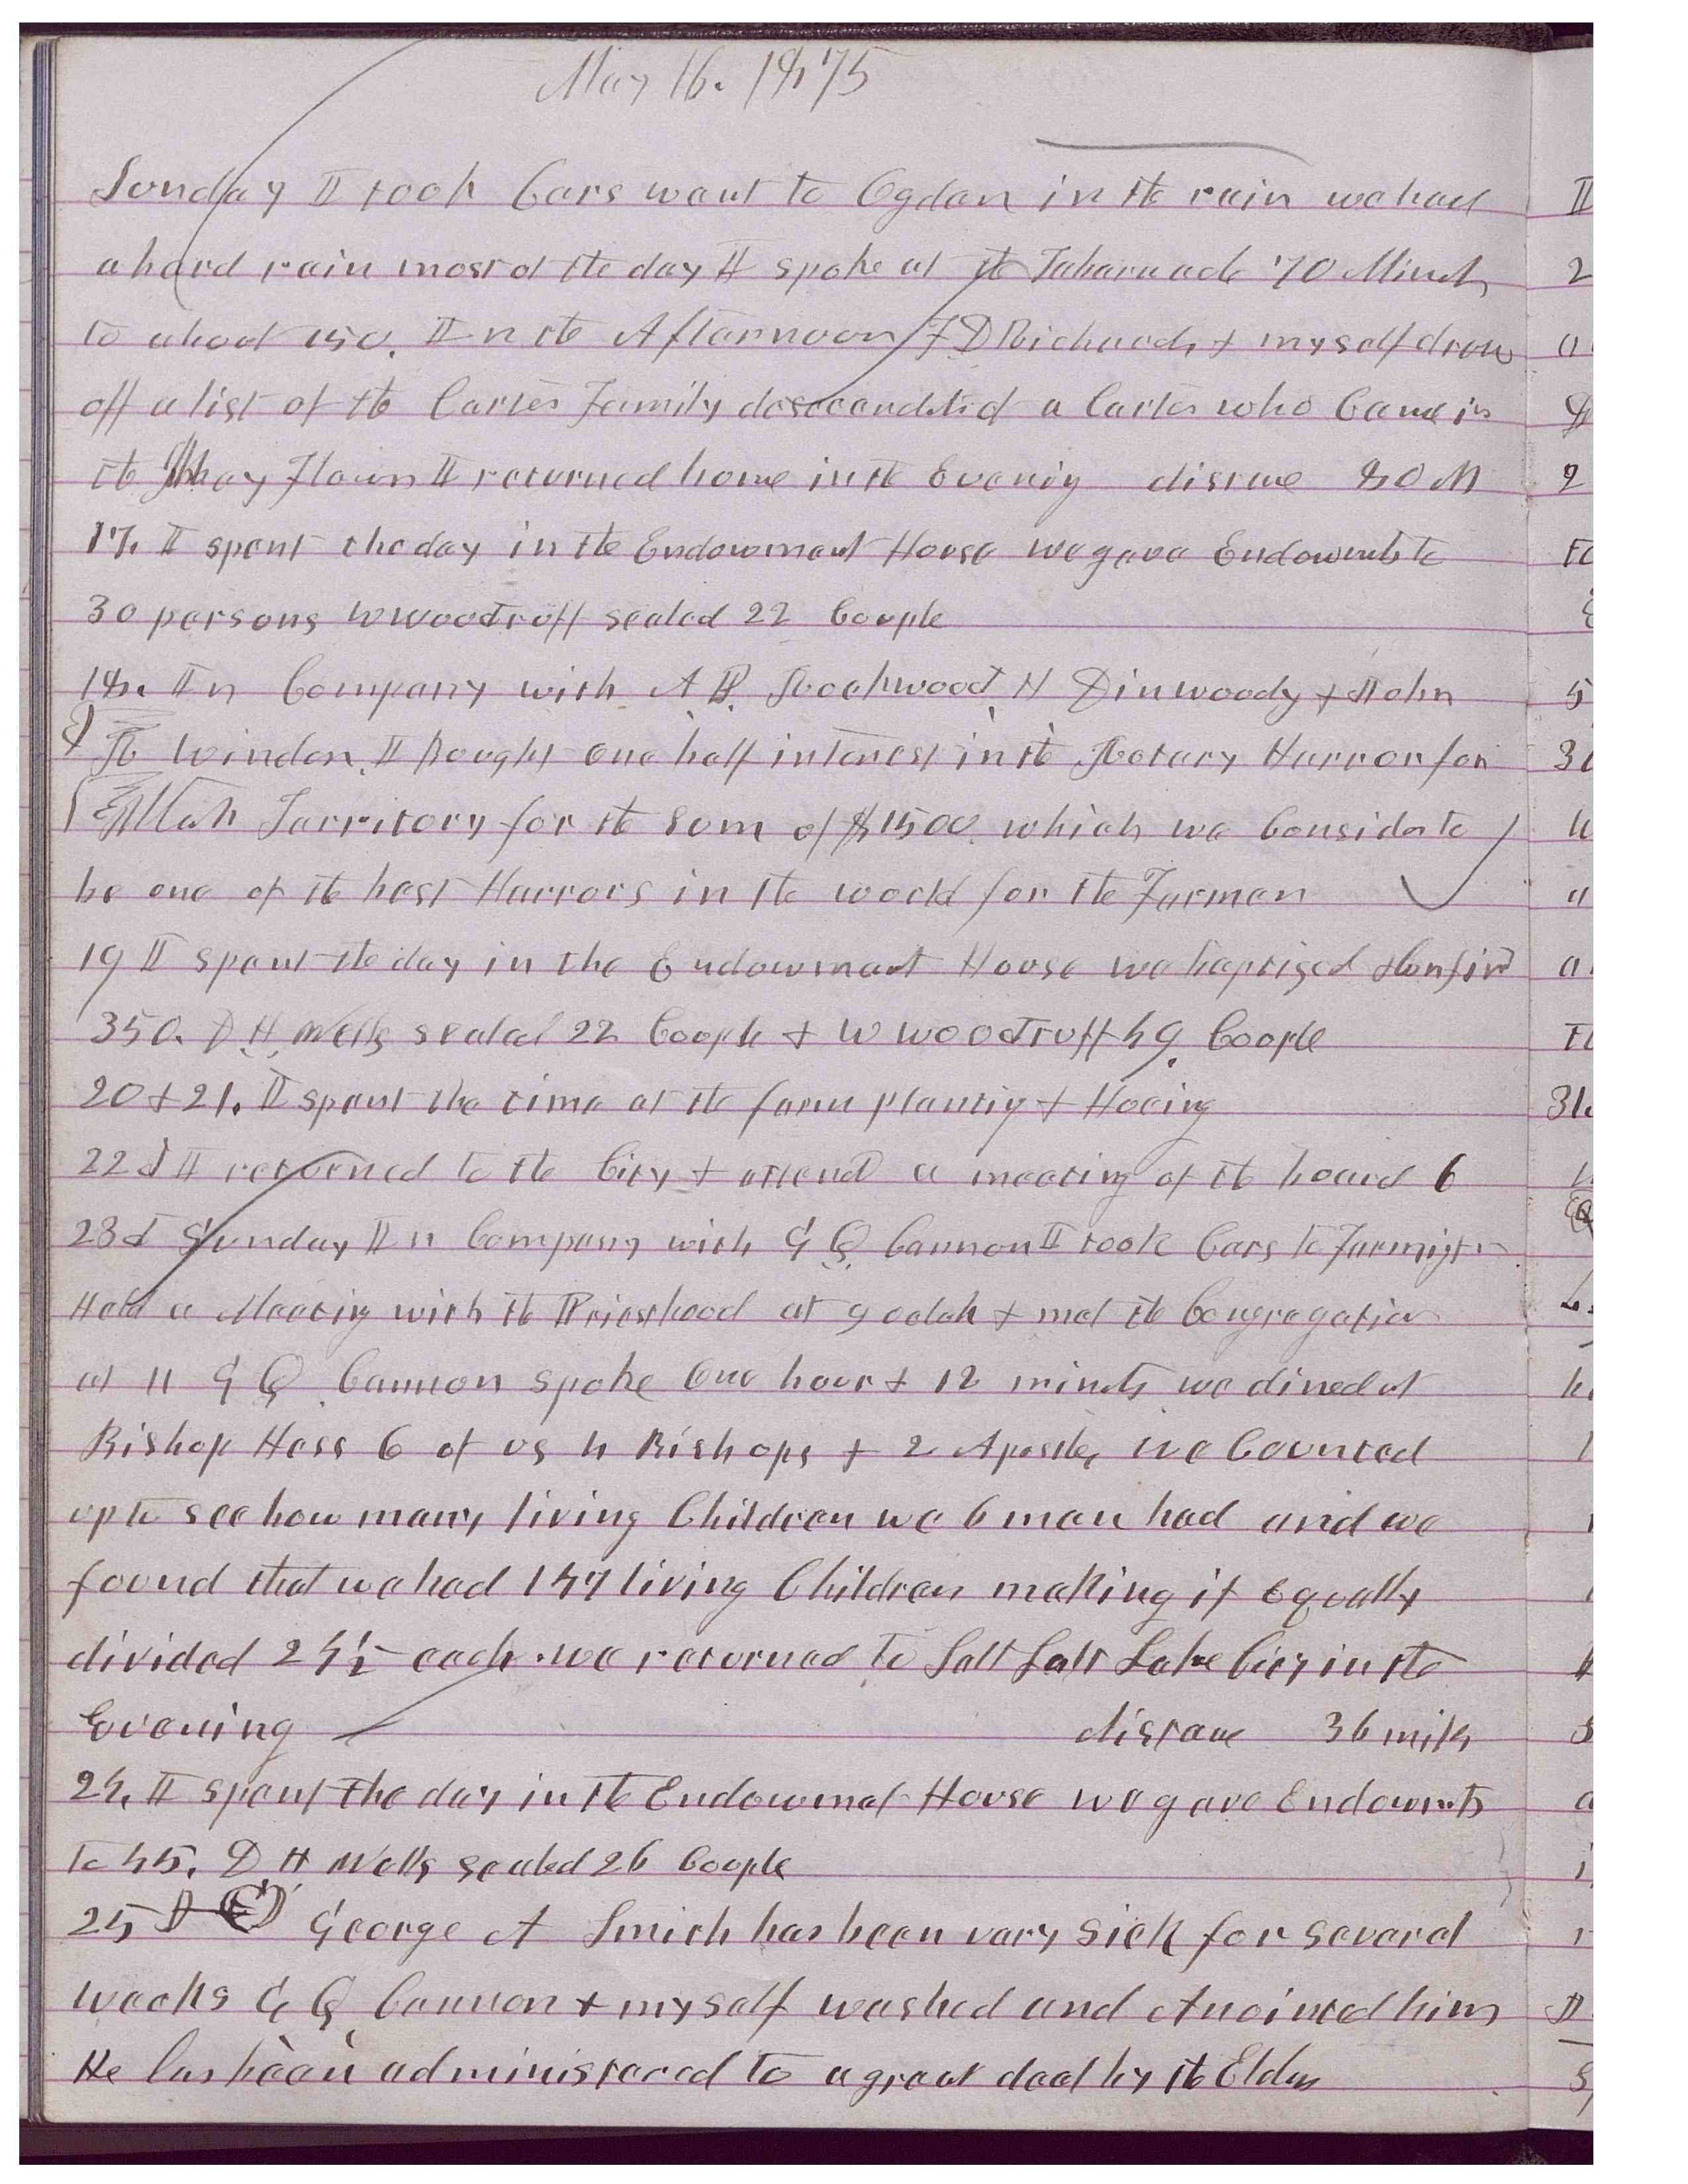 May 16. 1875
Sunday I took Cars went to Ogden in the rain we had
a hard rain most of the day I spoke at the Tabernacle 70 Minuts
to about 150. In the Afternoon F D Richards & myself drew
off a list of the Carter Family a Carter who Came in
the May Flower I returned home in the Evening distance 80 M
17. I spent the day in the Endowment House we gave Endowmts to
30 persons W Woodruff sealed 22 Couple
18. In Company with A P. Rockwood H Dinwoody & John
R Winder. I Bought one half interest in the Rotary Harror for
Utah Territory for the Sum of $1500. which we Consider to
be one of the best Harrors in the world for the Farmer
19 I spent the day in the Endowment House we baptized & Confird
350. D. H. Wells sealed 22 Couple & W Woodruff 49 Couple
20 & 21. I spent the time at the farm planting & Hoeing
22d I returned to the City & attend a meeting of the board 6
23d Sunday In Company with G Q. Cannon I took Cars to Farmigton
Held a Meeting with the Priesthood at 9 oclok & met the Congregation
at 11 G Q. Cannon spoke One hour & 12 minuts we dined at
Bishop Hess 6 of us 4 Bishops & 2 Apostles we Counted
up to see how many living Children we 6 men had and we
found that we had 147 living Children making if equally
divided 24½ each. we returned to Salt Salt Lake City in the
Evening distance 36 mils
24. I spent the day in the Endowmet House we gave Endowmts
to 45. D H Wells sealed 26 Couple
25 George A Smith has been vary sick for several
weeks G Q Cannon & myself washed and Anointed him
He has been administered to a great deal by the Elders